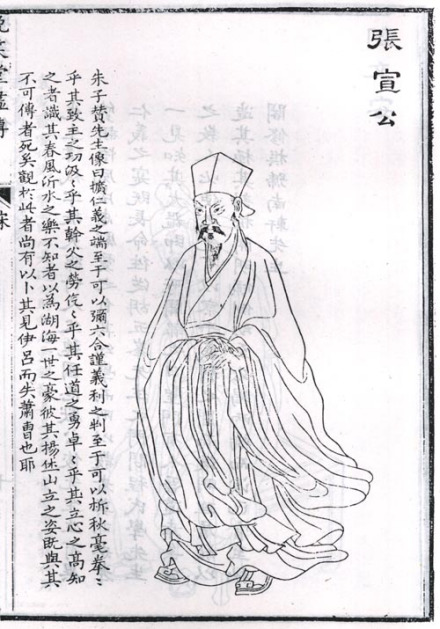 張宣公
朱子贊先生像曰擴仁義之端至于可以彌六合謹義利之判至于可以析秋毫拳〻
乎其致主之功汲〻乎其幹父之勞仡〻乎其任道之勇卓〻乎其立心之高知
之者識其春風沂水之樂不知者以為湖海一世之豪彼其揚休山立之姿既與其
不可傳者死矣觀於此者尚有以卜其見伊呂而失蕭曹也耶